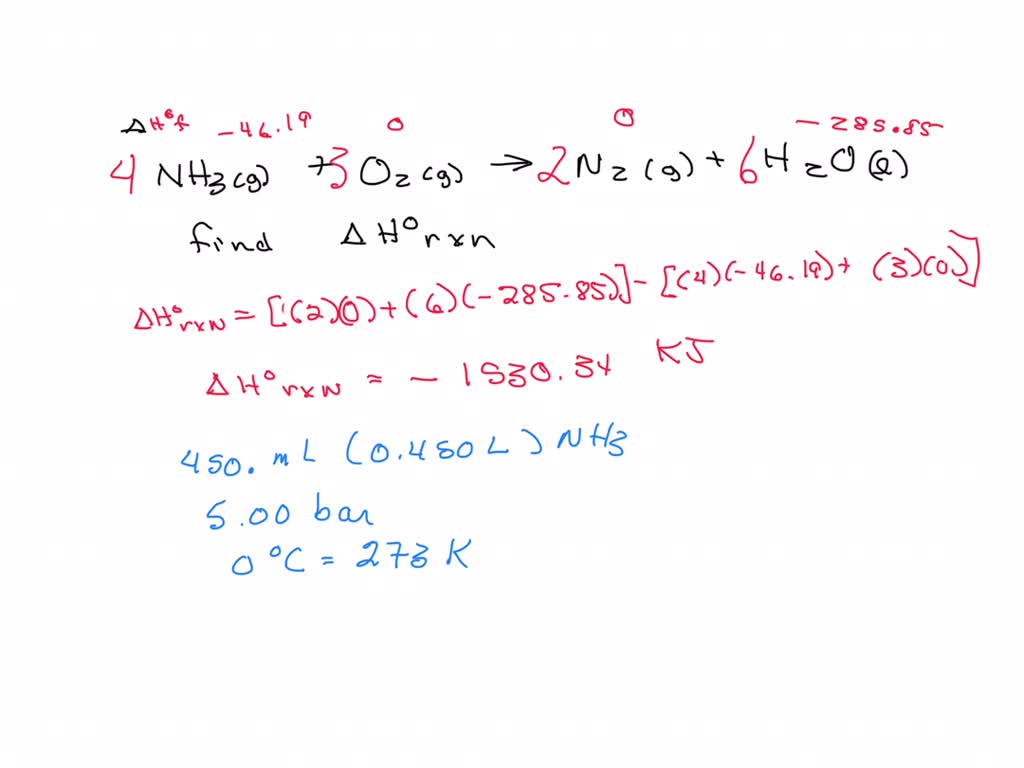 ΔH°f -46.19 0 0 -285.85
4 NH3(g) + 3 O2(g) → 2 N2(g) + 6 H2O(l)
find ΔH°rxn
ΔH°rxn = [(2)(0) + (6)(-285.85)] - [(4)(-46.19) + (3)(0)]
ΔH°rxn = - 1530.34 KJ
450. mL (0.450 L) NH3
5.00 bar
0 °C = 273 K